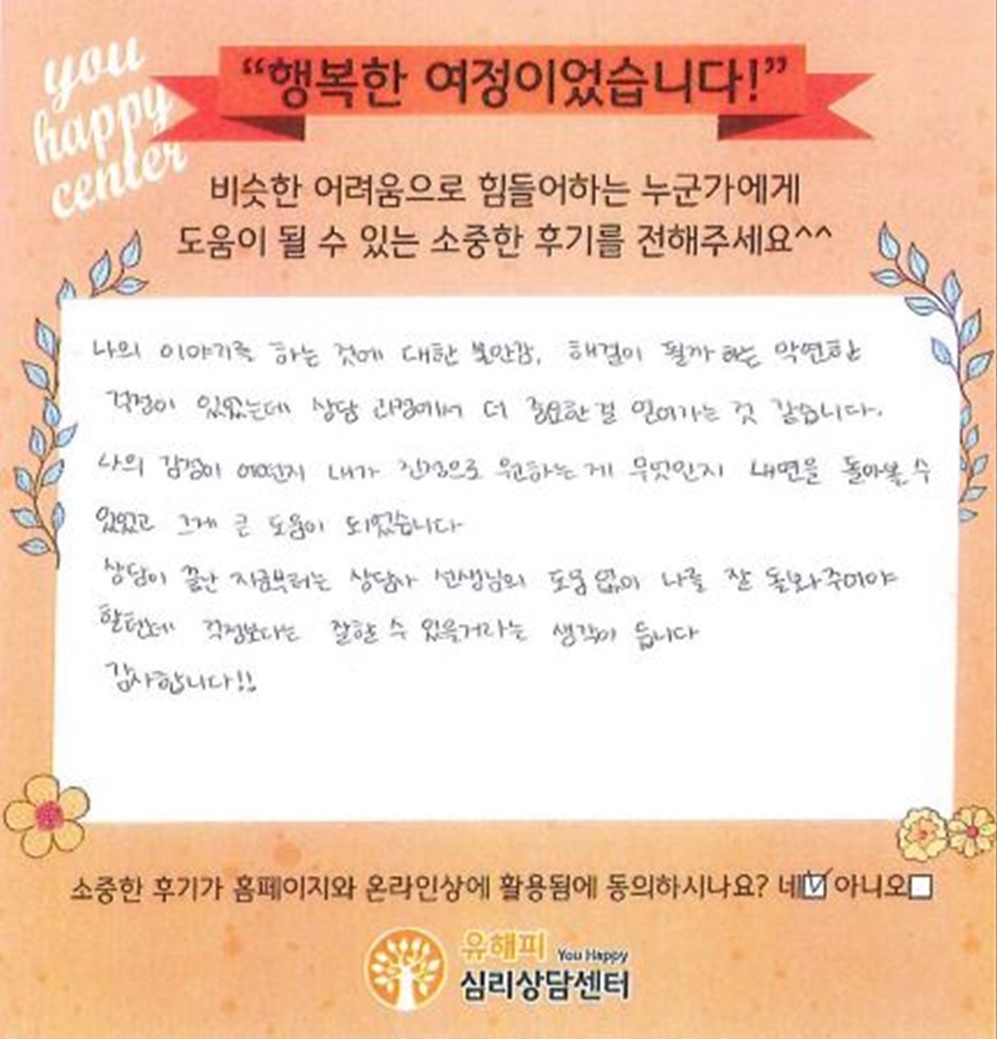 you
happy
center
“행복한 여정이었습니다!”
비슷한 어려움으로 힘들어하는 누군가에게
도움이 될 수 있는 소중한 후기를 전해주세요^^
나의 이야기를 하는 것에 대한 불안감, 해결이 될까 하는 막연한
걱정이 있었는데 상담 과정에서 더 중요한 걸 얻어가는 것 같습니다.
나의 감정이 어떤지 내가 진정으로 원하는 게 무엇인지 내면을 돌아볼 수
있었고 그게 큰 도움이 되었습니다
상담이 끝난 지금부터는 상담사 선생님의 도움 없이 나를 잘 돌봐주어야
할텐데 걱정보다는 잘할 수 있을거라는 생각이 듭니다
감사합니다!!
소중한 후기가 홈페이지와 온라인상에 활용됨에 동의하시나요? 네☑ 아니오☐
유해피 You Happy
심리상담센터